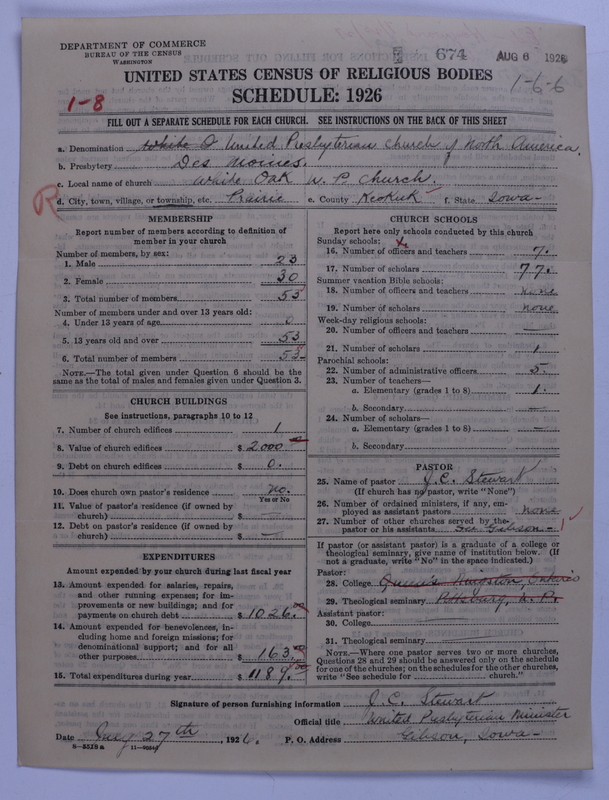 DEPARTMENT OF COMMERCE
BUREAU OF THE CENSUS
WASHINGTON
674
AUG 6 1926
1-6-6
UNITED STATES CENSUS OF RELIGIOUS BODIES
SCHEDULE: 1926
1-8
FILL OUT A SEPARATE SCHEDULE FOR EACH CHURCH. SEE INSTRUCTIONS ON THE BACK OF THIS SHEET
a. Denomination White O United Presbyterian Church of North America.
b. Presbytery Des Moines.
c. Local name of church White Oak U. P. Church.
R
d. City, town, village, or township, etc. Prairie e. County Keokuk f. State Iowa
MEMBERSHIP
Report number of members according to definition of
member in your church
Number of members, by sex:
1. Male 23
2. Female 30
3. Total number of members 53
Number of members under and over 13 years old:
4. Under 13 years of age 0
5. 13 years old and over 53
6. Total number of members 53
NOTE.—The total given under Question 6 should be the
same as the total of males and females given under Question 3.
CHURCH BUILDINGS
See instructions, paragraphs 10 to 12
7. Number of church edifices 1
8. Value of church edifices $ 2000
9. Debt on church edifices $ 0.
10. Does church own pastor's residence no.
Yes or No
11. Value of pastor's residence (if owned by
church) $ —
12. Debt on pastor's residence (if owned by
church) $ —
EXPENDITURES
Amount expended by your church during last fiscal year
13. Amount expended for salaries, repairs,
and other running expenses; for im-
provements or new buildings; and for
payments on church debt $ 1026.
14. Amount expended for benevolences, in-
cluding home and foreign missions; for
denominational support; and for all
other purposes $ 163
15. Total expenditures during year $ 1189.
CHURCH SCHOOLS
Report here only schools conducted by this church
Sunday schools:
16. Number of officers and teachers 7.
17. Number of scholars 77.
Summer vacation Bible schools:
18. Number of officers and teachers none
19. Number of scholars none
Week-day religious schools:
20. Number of officers and teachers —
21. Number of scholars 1
Parochial schools:
22. Number of administrative officers 5.
23. Number of teachers—
a. Elementary (grades 1 to 8) 1.
b. Secondary —
24. Number of scholars—
a. Elementary (grades 1 to 8) —
b. Secondary
PASTOR
25. Name of pastor J. C. Stewart
(If church has no pastor, write "None")
26. Number of ordained ministers, if any, em-
ployed as assistant pastors none
27. Number of other churches served by the
pastor or his assistants See Gibson 1
If pastor (or assistant pastor) is a graduate of a college or
theological seminary, give name of institution below. (If
not a graduate, write "No" in the space indicated.)
Pastor:
28. College Queen's Kingston, Ontario
29. Theological seminary Pittsburg, U. P.
Assistant pastor:
30. College
31. Theological seminary
NOTE.—Where one pastor serves two or more churches,
Questions 28 and 29 should be answered only on the schedule
for one of the churches; on the schedules for the other churches,
write "See schedule for church."
Signature of person furnishing information J. C. Stewart
Official title United Presbyterian Minister
Date July 27th, 1926. P. O. Address Gibson, Iowa
8—5519a 11—9554